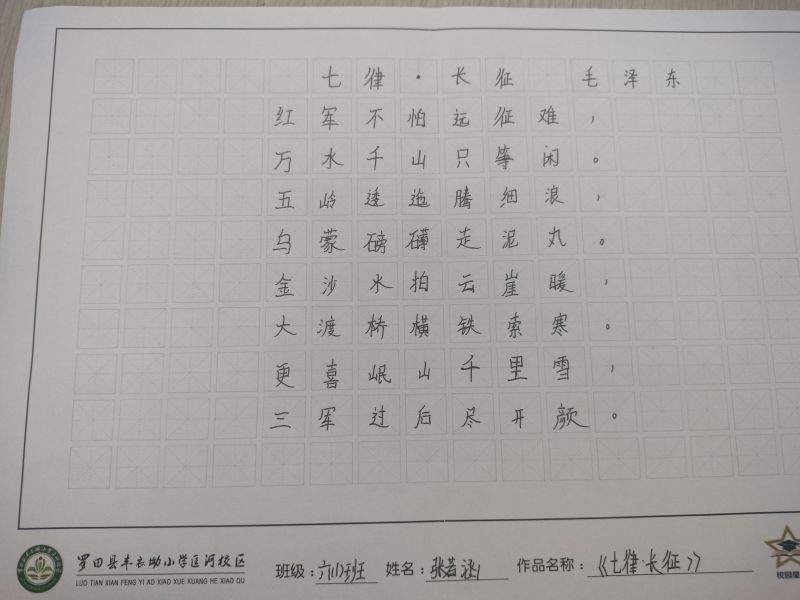 七律·长征 毛泽东
红军不怕远征难，
万水千山只等闲。
五岭逶迤腾细浪，
乌蒙磅礴走泥丸。
金沙水拍云崖暖，
大渡桥横铁索寒。
更喜岷山千里雪，
三军过后尽开颜。
罗田县丰衣坳小学匡河校区
LUO TIAN XIAN FENG YI AO XIAO XUE KUANG HE XIAO QU
班级：六(1)班 姓名：张若涵 作品名称：《七律·长征》
校园星